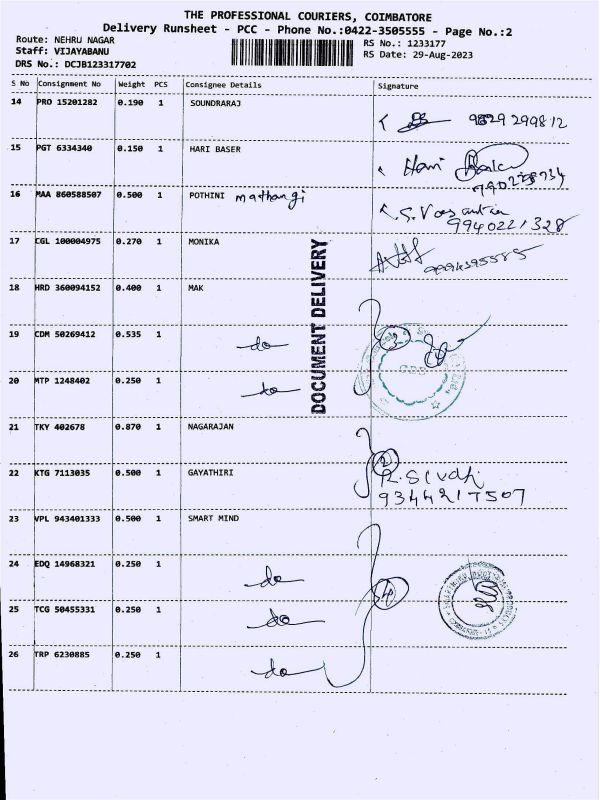 THE PROFESSIONAL COURIERS, COIMBATORE
Delivery Runsheet - PCC - Phone No.:0422-3505555 - Page No.:2
Route: NEHRU NAGAR
RS No.: 1233177
Staff: VIJAYABANU
RS Date: 29-Aug-2023
DRS No.: DCJB123317702
S No Consignment No Weight PCS Consignee Details Signature
14 PRO 15201282 0.190 1 SOUNDRARAJ
15 PGT 6334340 0.150 1 HARI BASER Hari
16 MAA 860588507 0.500 1 POTHINI mathangi
9940221328
17 CGL 100004975 0.270 1 MONIKA
18 HRD 360094152 0.400 1 MAK
DOCUMENT DELIVERY
19 CDM 50269412 0.535 1 do 3
20 MTP 1248402 0.250 1 do
21 TKY 402678 0.870 1 NAGARAJAN
2
22 KTG 7113035 0.500 1 GAYATHIRI
9344217507
23 VPL 943401333 0.500 1 SMART MIND
24 EDQ 14968321 0.250 1 do
4
25 TCG 50455331 0.250 1 do
26 TRP 6230885 0.250 1 do